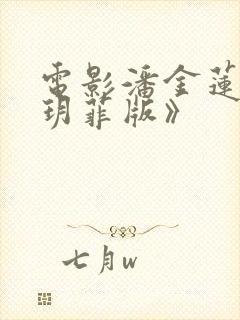 電影潘金蓮
玥菲版》
七月w